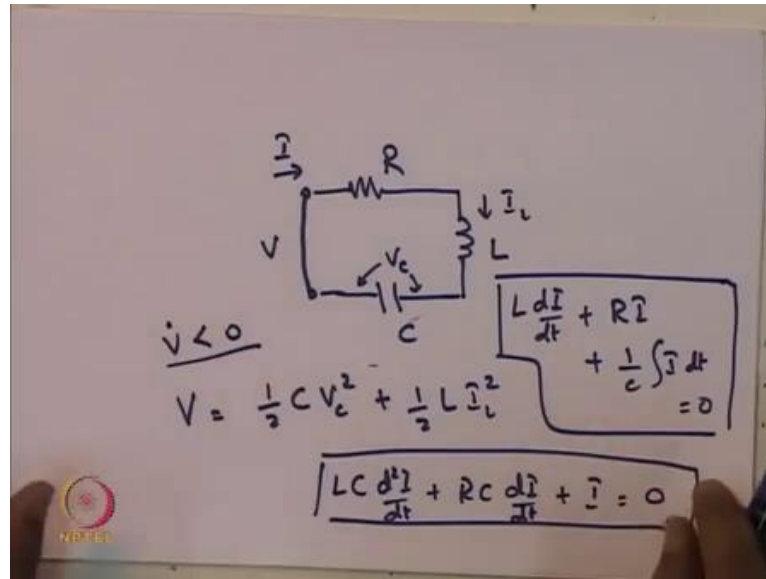 I
→
R
V
↓ I_L
L
V_c
C
V̇ < 0
V = ½ C V_c² + ½ L I_L²
L dI/dt + RI
+ 1/C ∫ I dt
= 0
LC d²I/dt + RC dI/dt + I = 0
NPTEL